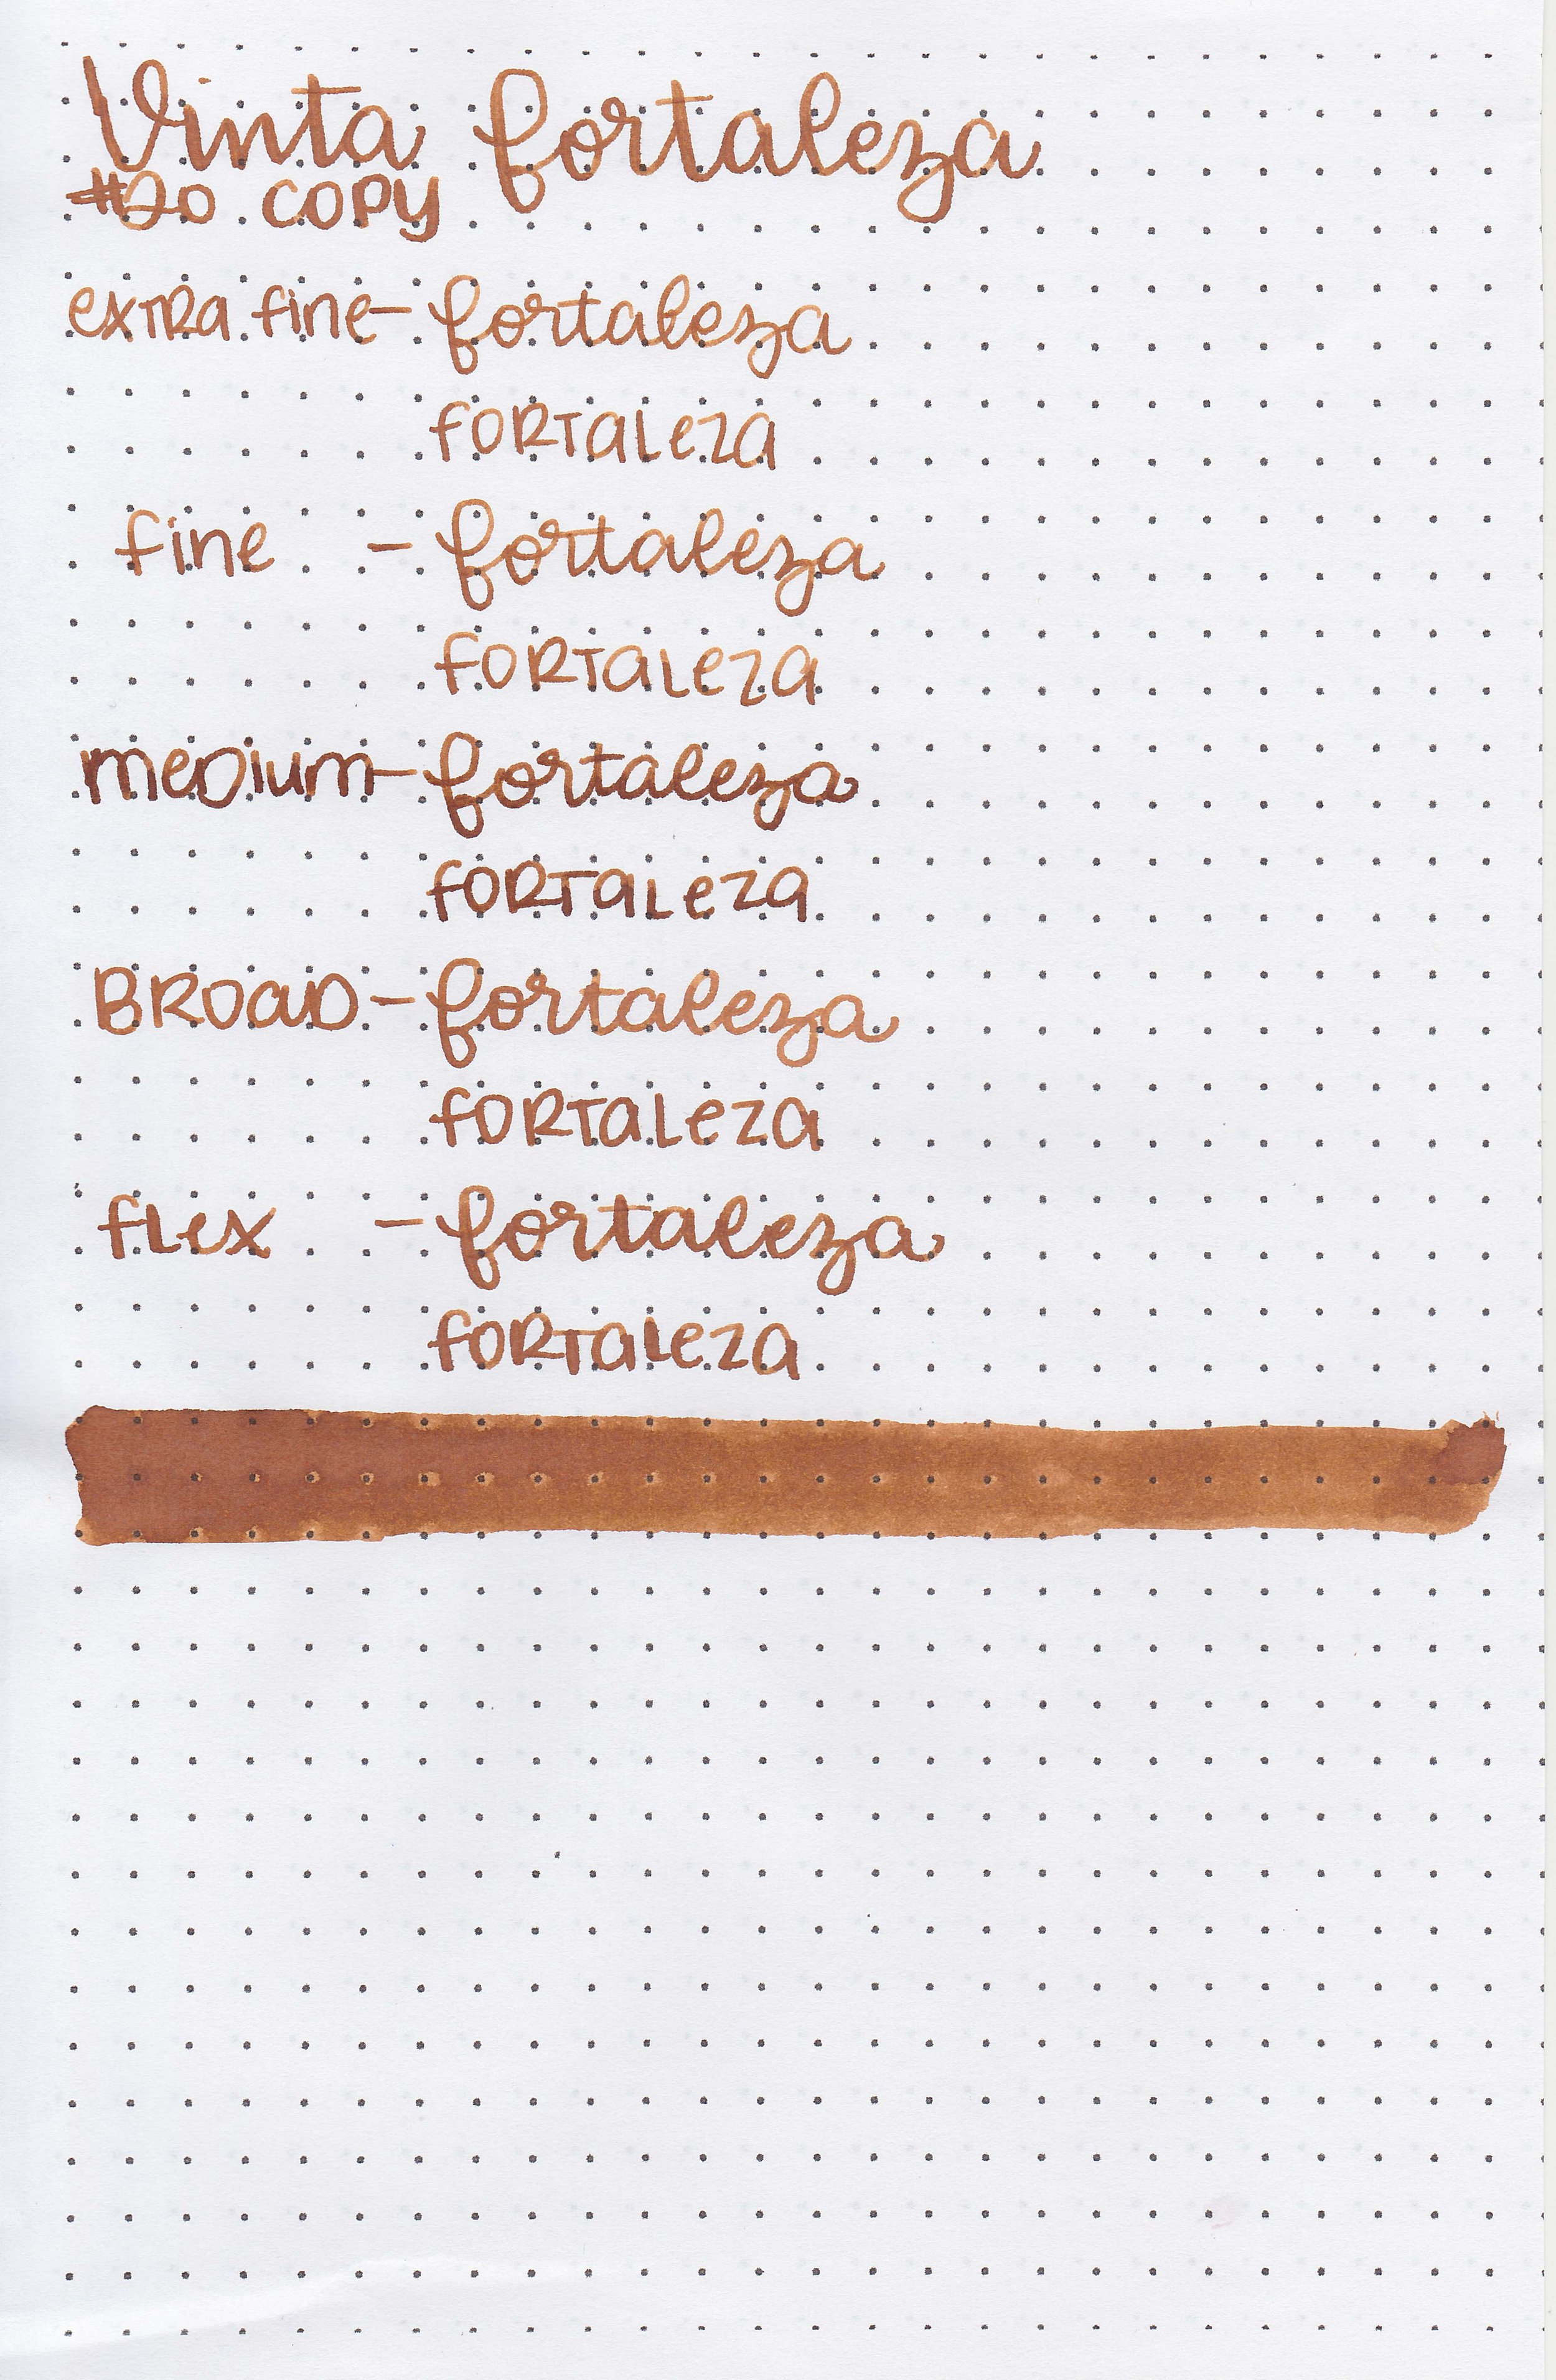 Vinta fortaleza
#20 COPY
extRa fine - fortaleza
fORTaLeza
fine - fortaleza
fORTaLeza
meDium - fortaleza
fORTaLeza
BROaD - fortaleza
fORTaLeza
fLex - fortaleza
fORTaLeza